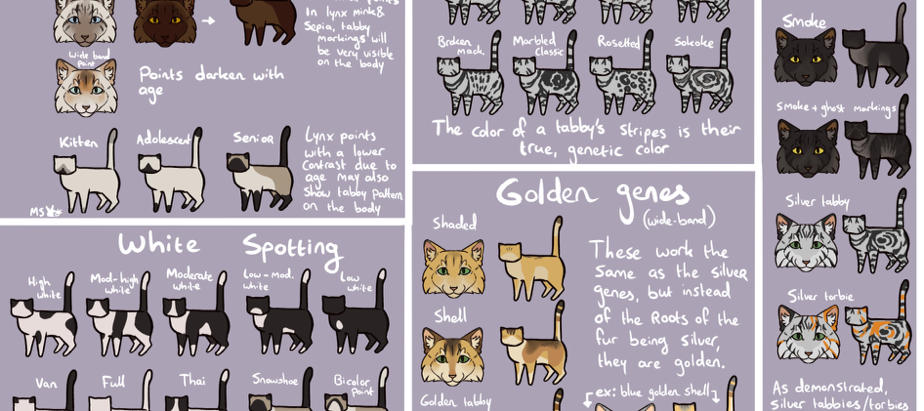 In lynx mink &
Sepia, tabby
markings will
be very visible
on the body
Wide band
point
Points darken with
age
Kitten
Adolescent
Senior
Lynx points
with a lower
contrast due to
age may also
show tabby pattern
on the body
MS
White Spotting
High
white
Mod-high
white
Moderate
white
Low-mod.
white
Low
white
Van
Full
Thai
Snowshoe
Bicolor
point
Broken
mack.
Marbled
Classic
Rosetted
Sokoke
The color of a tabby's stripes is their
true, genetic color
Golden genes
(wide-band)
Shaded
Shell
Golden tabby
These work the
same as the silver
genes, but instead
of the Roots of the
fur being silver,
they are golden.
ex: blue golden shell
Smoke
Smoke + ghost markings
Silver tabby
Silver torbie
As demonstrated,
silver tabbies/torbies